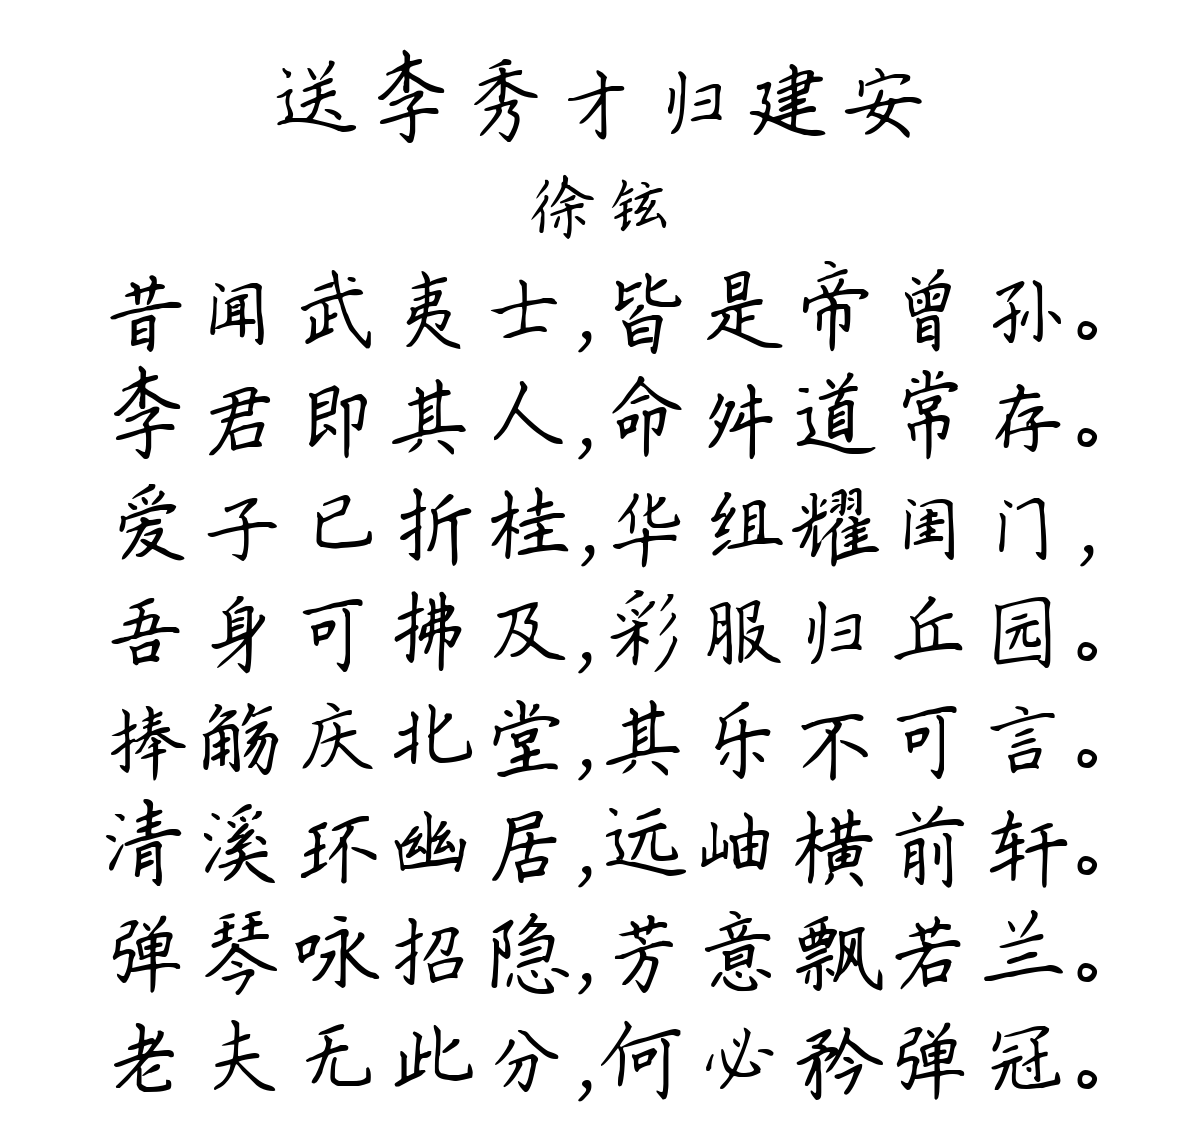 送李秀才归建安
徐铉
昔闻武夷士,皆是帝曾孙。
李君即其人,命舛道常存。
爱子已折桂,华组耀闺门,
吾身可拂及,彩服归丘园。
捧觞庆北堂,其乐不可言。
清溪环幽居,远岫横前轩。
弹琴咏招隐,芳意飘若兰。
老夫无此分,何必矜弹冠。